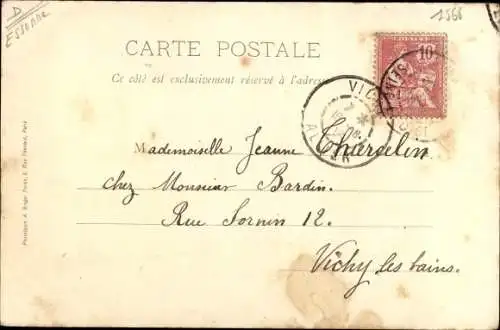 D
Essonne
1566
CARTE POSTALE
Ce côté est exclusivement réservé à l'adresse
10
VICHY
ALLIER
Mademoiselle Jeanne Thurcelin
chez Monsieur Bardin.
Rue Sornin 12.
Vichy les bains.